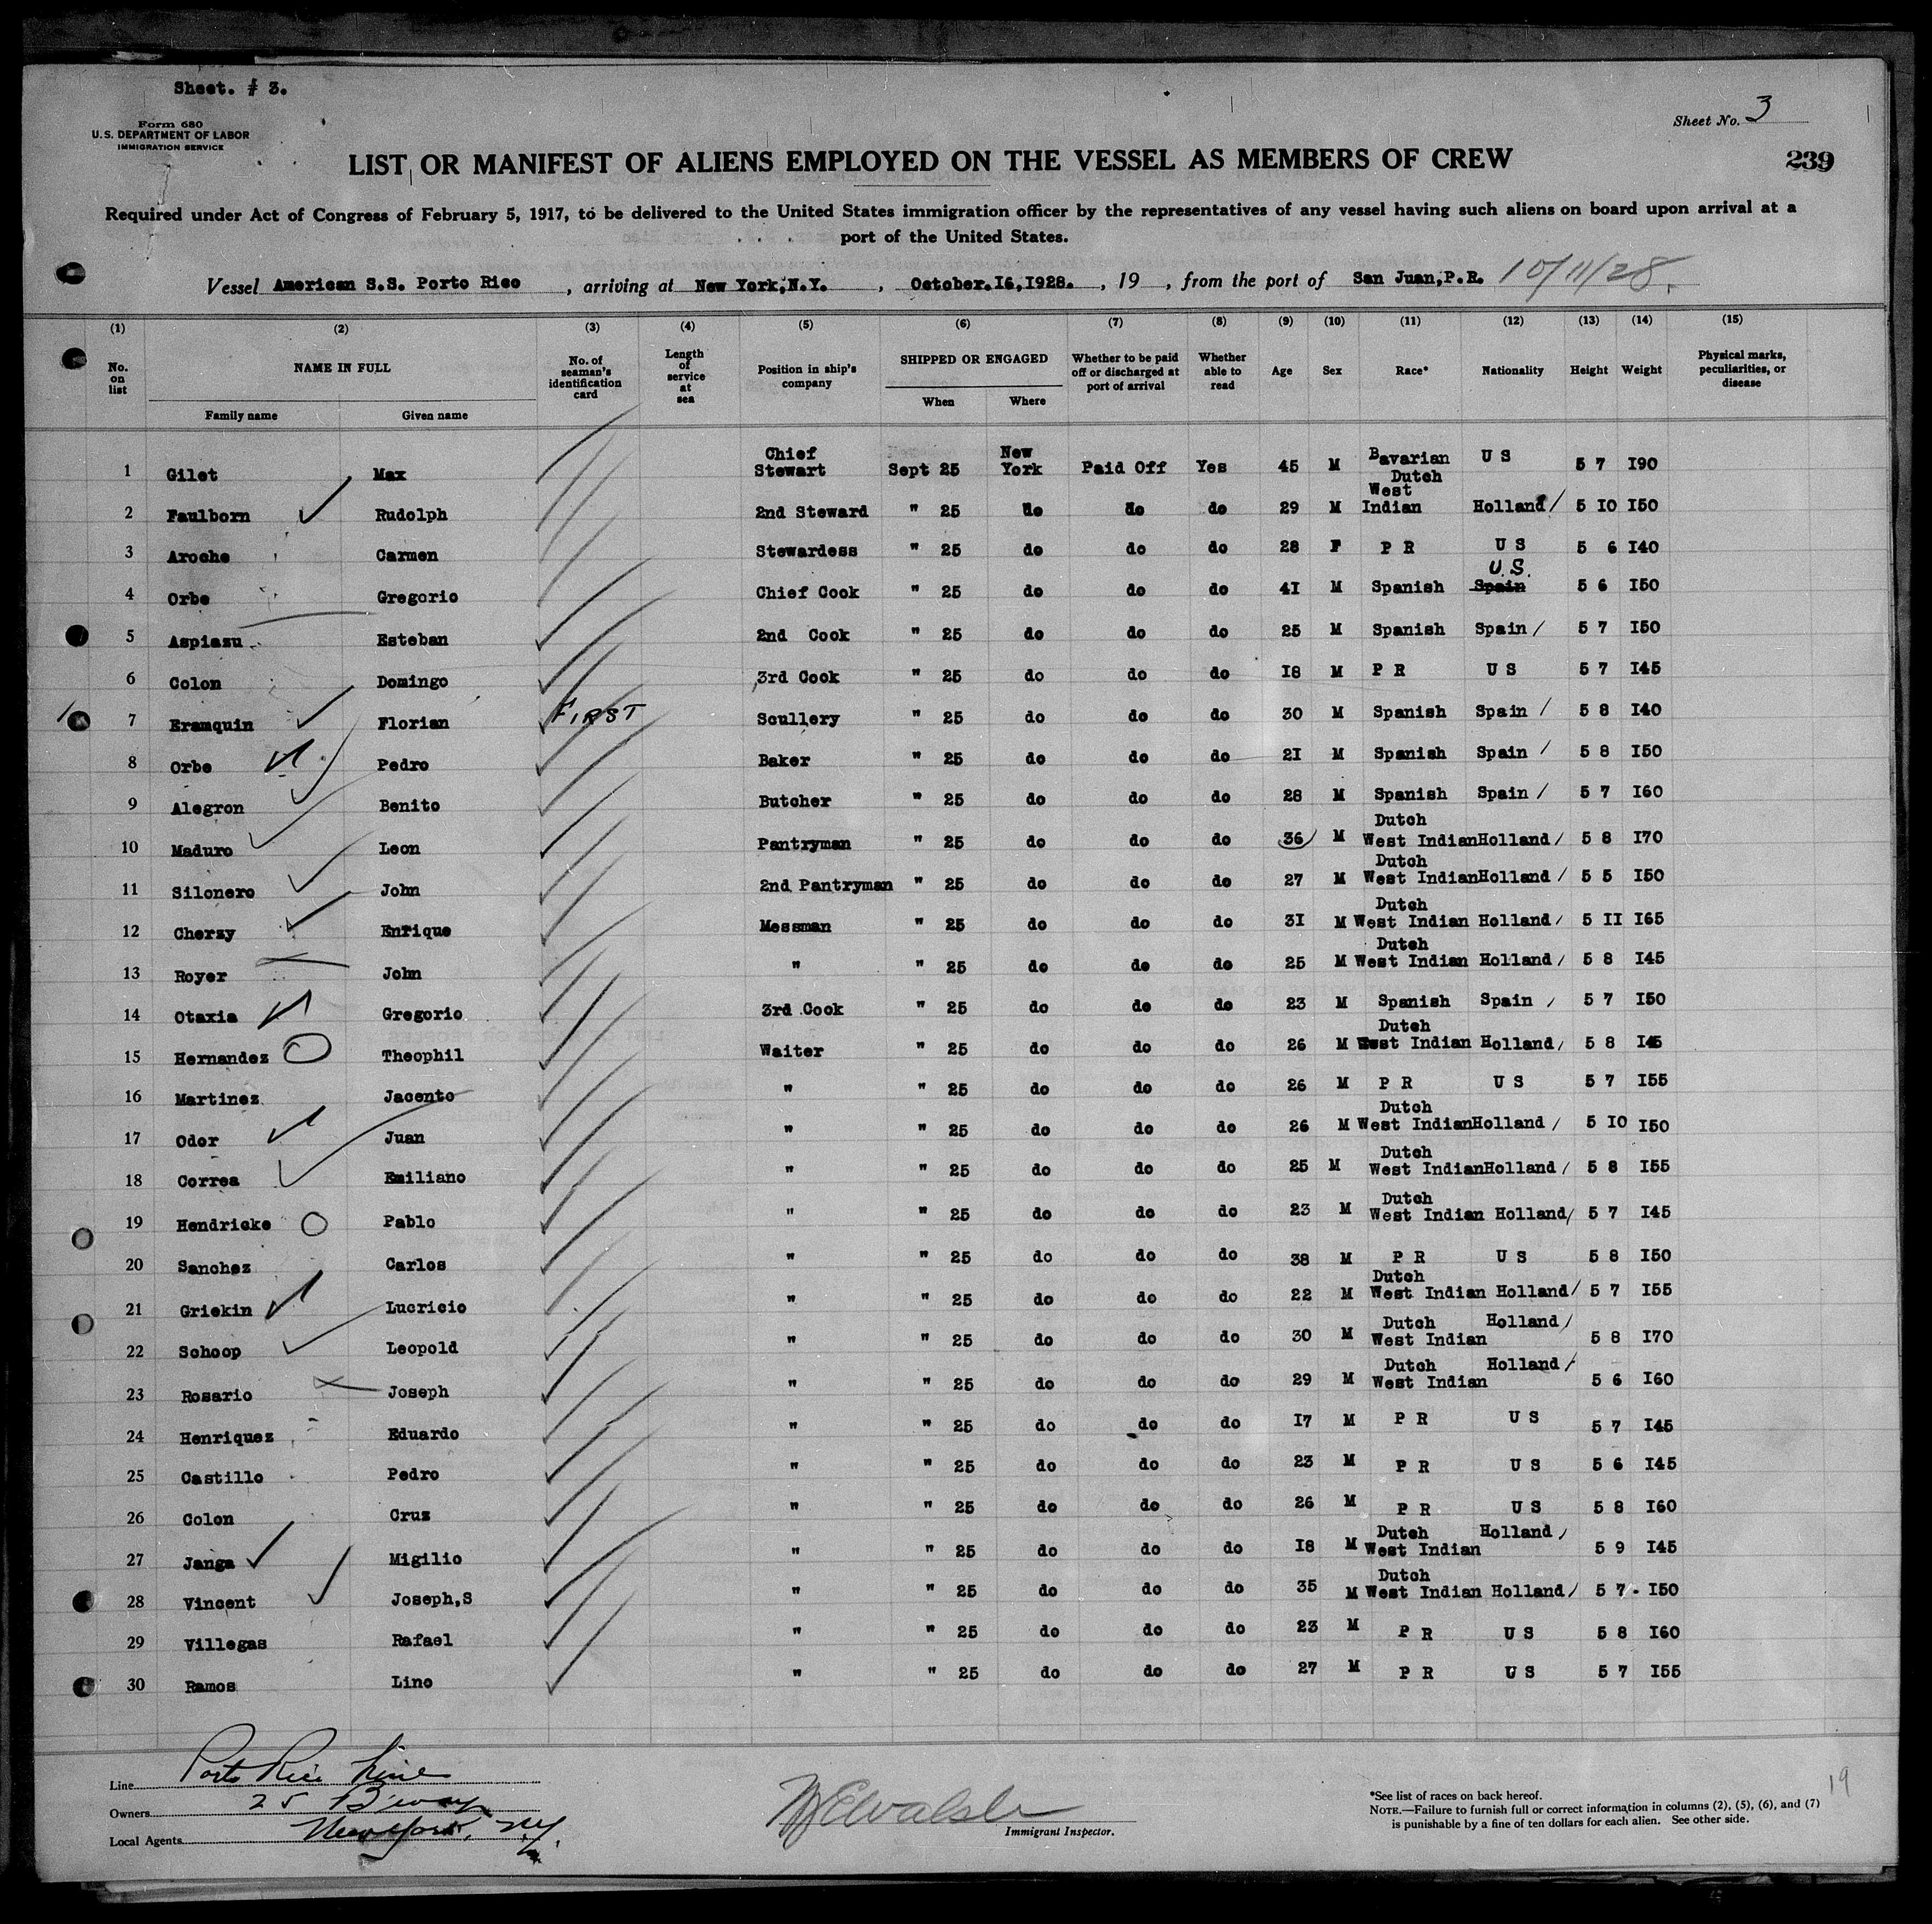 Sheet. # 3.
Form 680
U.S. DEPARTMENT OF LABOR
IMMIGRATION SERVICE
Sheet No. 3
LIST OR MANIFEST OF ALIENS EMPLOYED ON THE VESSEL AS MEMBERS OF CREW
239
Required under Act of Congress of February 5, 1917, to be delivered to the United States immigration officer by the representatives of any vessel having such aliens on board upon arrival at a
port of the United States.
Vessel American S.S. Porto Rico, arriving at New York,N.Y., October.16,1928., 19 , from the port of San Juan,P.R. 10/11/28.
(1) (2) (3) (4) (5) (6) (7) (8) (9) (10) (11) (12) (13) (14) (15)
No. on list NAME IN FULL Family name Given name No. of seaman's identification card Length of service at sea Position in ship's company SHIPPED OR ENGAGED When Where Whether to be paid off or discharged at port of arrival Whether able to read Age Sex Race* Nationality Height Weight Physical marks, peculiarities, or disease
1 Gilet Max Chief Stewart Sept 25 New York Paid Off Yes 45 M Bavarian U S 5 7 I90
2 Faulborn Rudolph 2nd Steward " 25 do do do 29 M Dutch West Indian Holland/ 5 IO I50
3 Aroche Carmen Stewardess " 25 do do do 28 F P R U S 5 6 I40
4 Orbe Gregorio Chief Cook " 25 do do do 4I M Spanish Spain U.S. 5 6 I50
5 Aspiazu Esteban 2nd Cook " 25 do do do 25 M Spanish Spain / 5 7 I50
6 Colon Domingo 3rd Cook " 25 do do do I8 M P R U S 5 7 I45
7 Eramquin Florian FIRST Scullery " 25 do do do 30 M Spanish Spain / 5 8 I40
8 Orbe Pedro Baker " 25 do do do 2I M Spanish Spain / 5 8 I50
9 Alegron Benito Butcher " 25 do do do 28 M Spanish Spain / 5 7 I60
10 Maduro Leon Pantryman " 25 do do do 36 M Dutch West Indian Holland/ 5 8 I70
11 Silonero John 2nd Pantryman " 25 do do do 27 M Dutch West Indian Holland/ 5 5 I50
12 Cherzy Enrique Messman " 25 do do do 3I M Dutch West Indian Holland/ 5 II I65
13 Royer John " " 25 do do do 25 M Dutch West Indian Holland/ 5 8 I45
14 Otaxia Gregorio 3rd Cook " 25 do do do 23 M Spanish Spain / 5 7 I50
15 Hernandez Theophil Waiter " 25 do do do 26 M Dutch West Indian Holland/ 5 8 I45
16 Martinez Jacento " " 25 do do do 26 M P R U S 5 7 I55
17 Odor Juan " " 25 do do do 26 M Dutch West Indian Holland/ 5 IO I50
18 Correa Emiliano " " 25 do do do 25 M Dutch West Indian Holland/ 5 8 I55
19 Hendricke Pablo " " 25 do do do 23 M Dutch West Indian Holland/ 5 7 I45
20 Sanchez Carlos " " 25 do do do 38 M P R U S 5 8 I50
21 Griekin Lucricio " " 25 do do do 22 M Dutch West Indian Holland/ 5 7 I55
22 Schoop Leopold " " 25 do do do 30 M Dutch West Indian Holland/ 5 8 I70
23 Rosario Joseph " " 25 do do do 29 M Dutch West Indian Holland/ 5 6 I60
24 Henriquez Eduardo " " 25 do do do I7 M P R U S 5 7 I45
25 Castillo Pedro " " 25 do do do 23 M P R U S 5 6 I45
26 Colon Cruz " " 25 do do do 26 M P R U S 5 8 I60
27 Janga Migilio " " 25 do do do I8 M Dutch West Indian Holland/ 5 9 I45
28 Vincent Joseph,S " " 25 do do do 35 M Dutch West Indian Holland/ 5 7 I50
29 Villegas Rafael " " 25 do do do 23 M P R U S 5 8 I60
30 Ramos Lino " " 25 do do do 27 M P R U S 5 7 I55
Line Porto Rico Line
Owners 25 B'way
Local Agents New York, N.Y.
W E Walsh
Immigrant Inspector.
*See list of races on back hereof.
NOTE.—Failure to furnish full or correct information in columns (2), (5), (6), and (7)
is punishable by a fine of ten dollars for each alien. See other side.
19